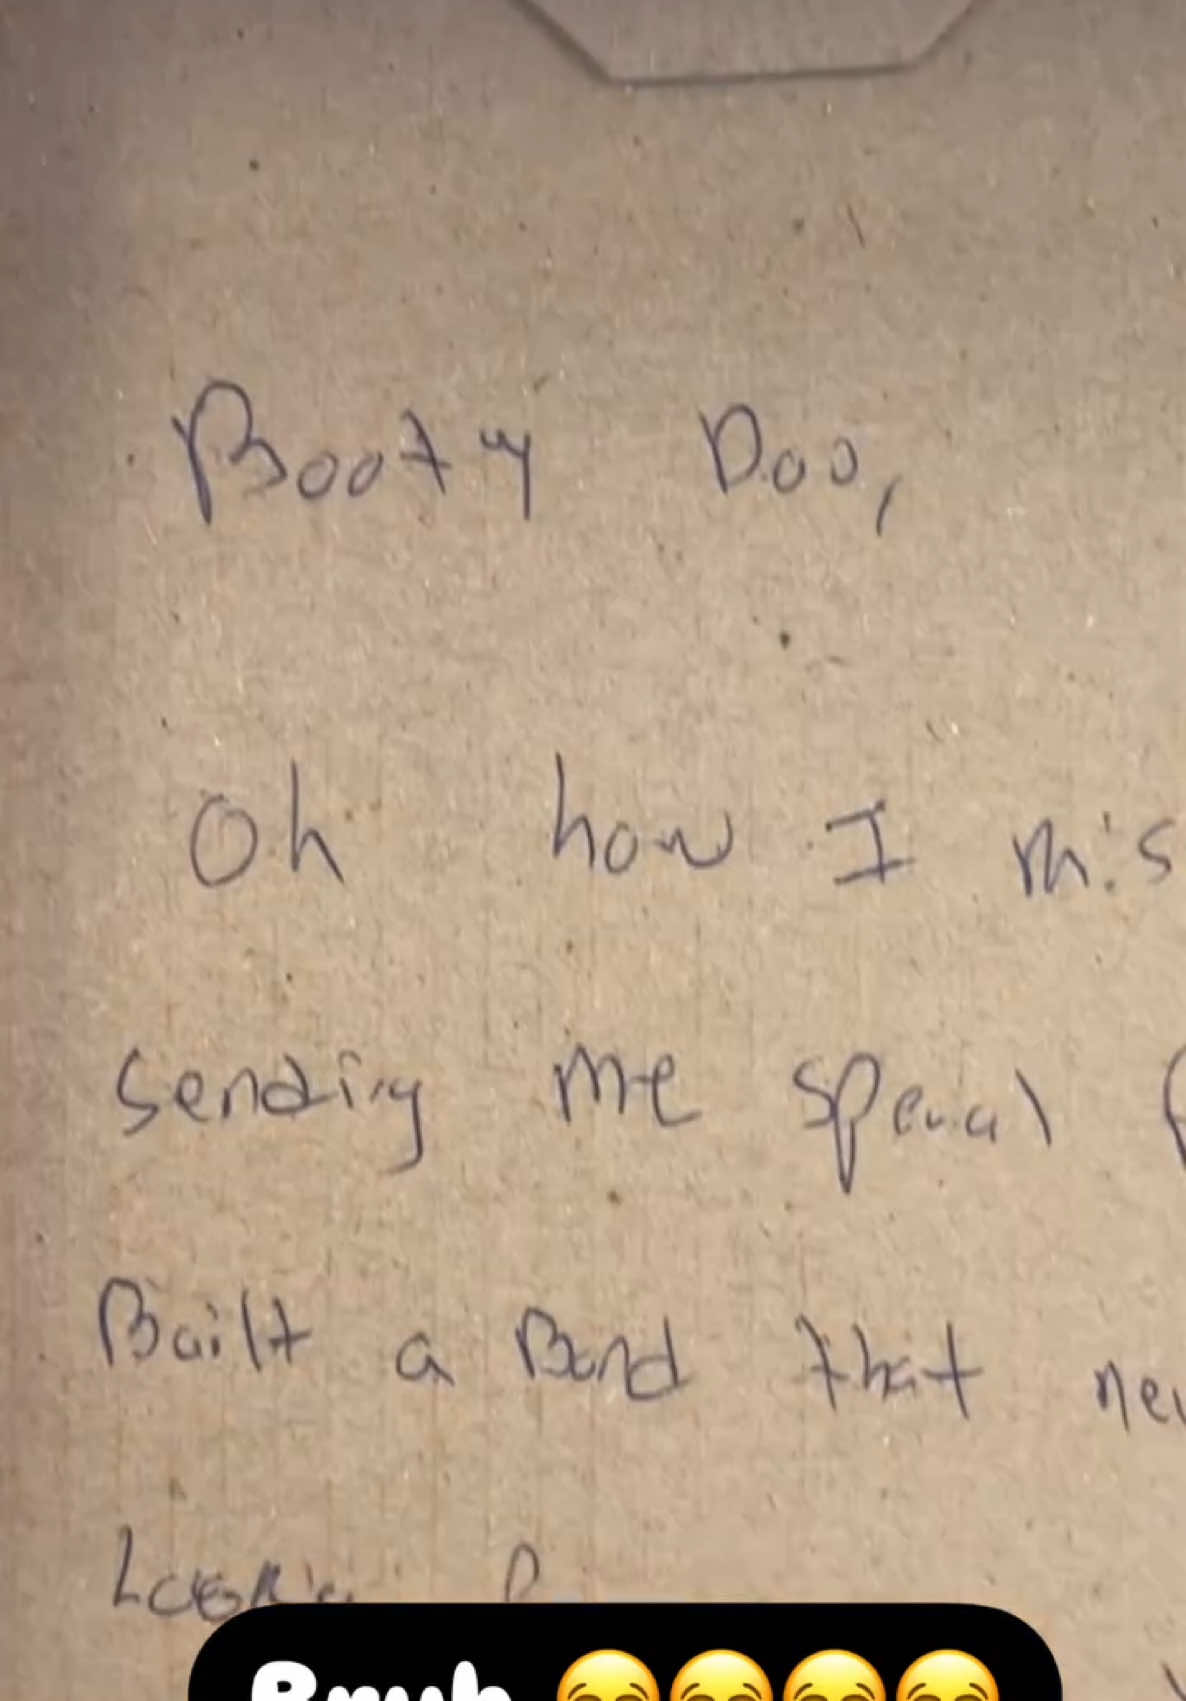 Booty Doo,
Oh how I mis
sending me special
Built a Bond that nev
Bruh 😂😂😂😂